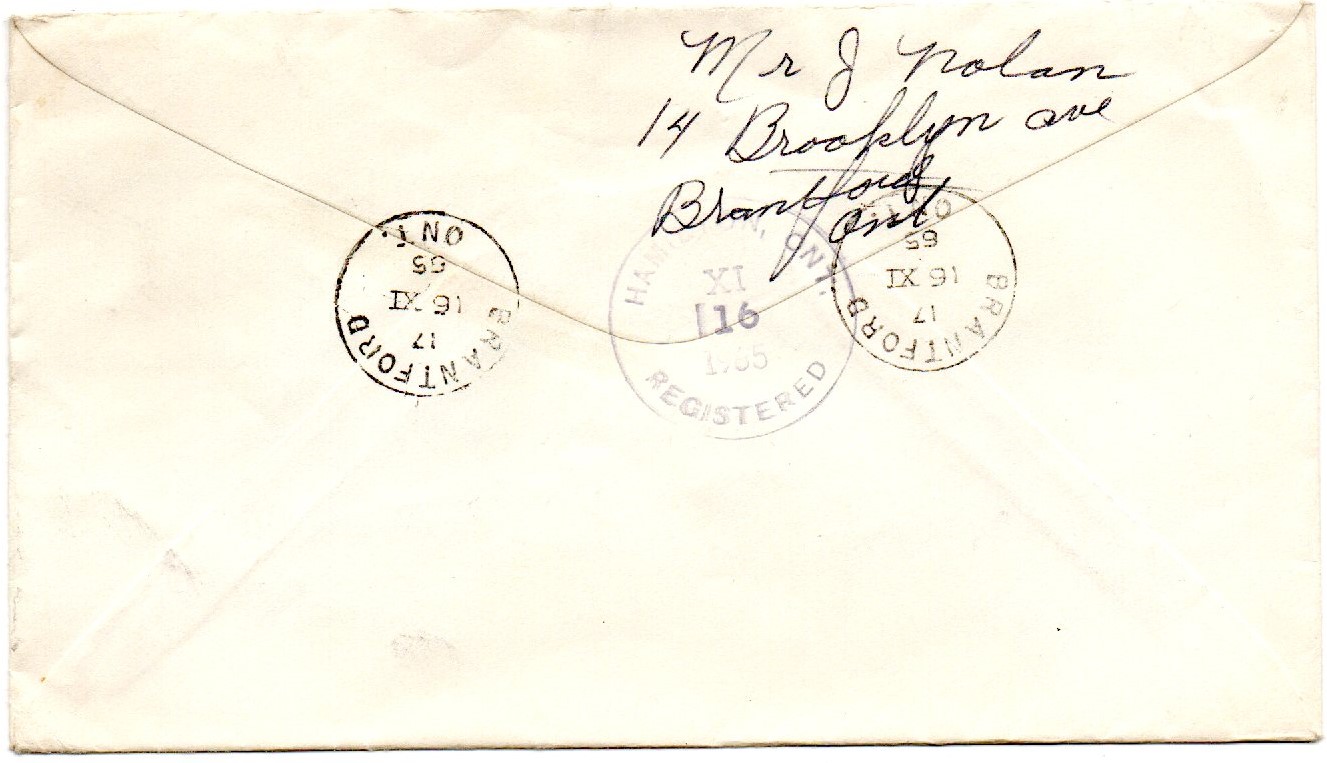 Mr J Nolan
14 Brooklyn ave
Brantford
Ont
BRANTFORD ONT.
17
16 XI
65
HAMILTON, ONT.
XI
16
1965
REGISTERED
BRANTFORD ONT.
17
16 XI
65